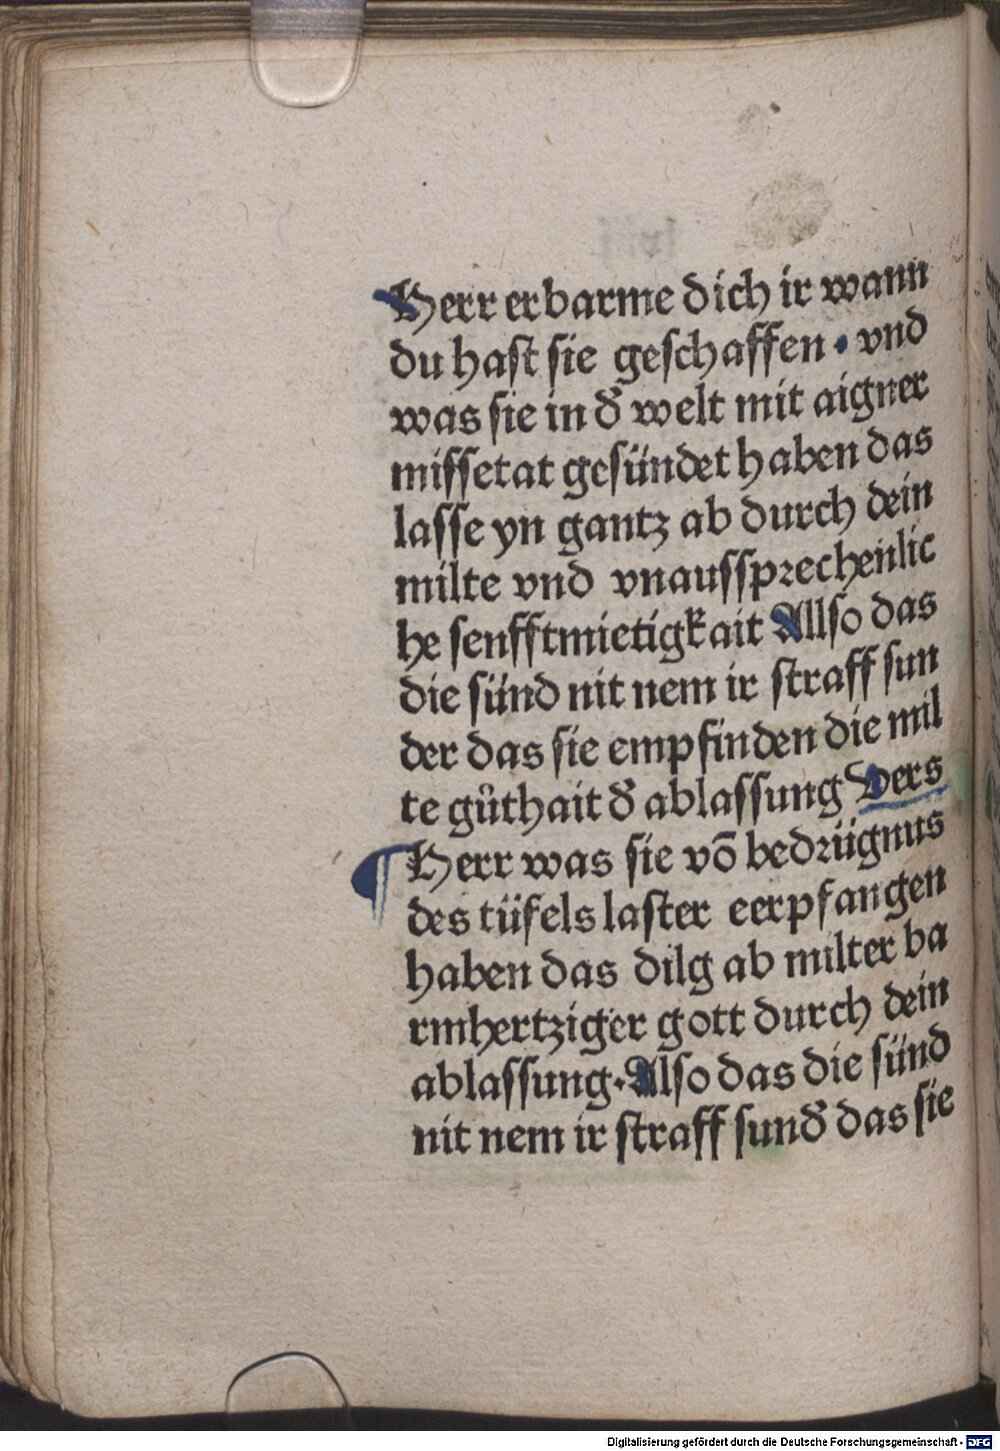 Herr erbarme dich ir wann
du hast sie geschaffen · vnd
was sie in d̕ welt mit aigner
missetat gesündet haben das
lasse yn gantz ab durch dein
milte vnd vnaussprechenlic
he senfftmietigkait Allso das
die sünd nit nem ir straff sun
der das sie empfinden die mil
te gůthait d̕ ablassung Vers
¶ Herr was sie võ bedrügnus
des tüfels laster eerpfangen
haben das dilg ab milter ba
rmhertziger gott durch dein
ablassung · Also das die sünd
nit nem ir straff sund̕ das sie
Digitalisierung gefördert durch die Deutsche Forschungsgemeinschaft - DFG